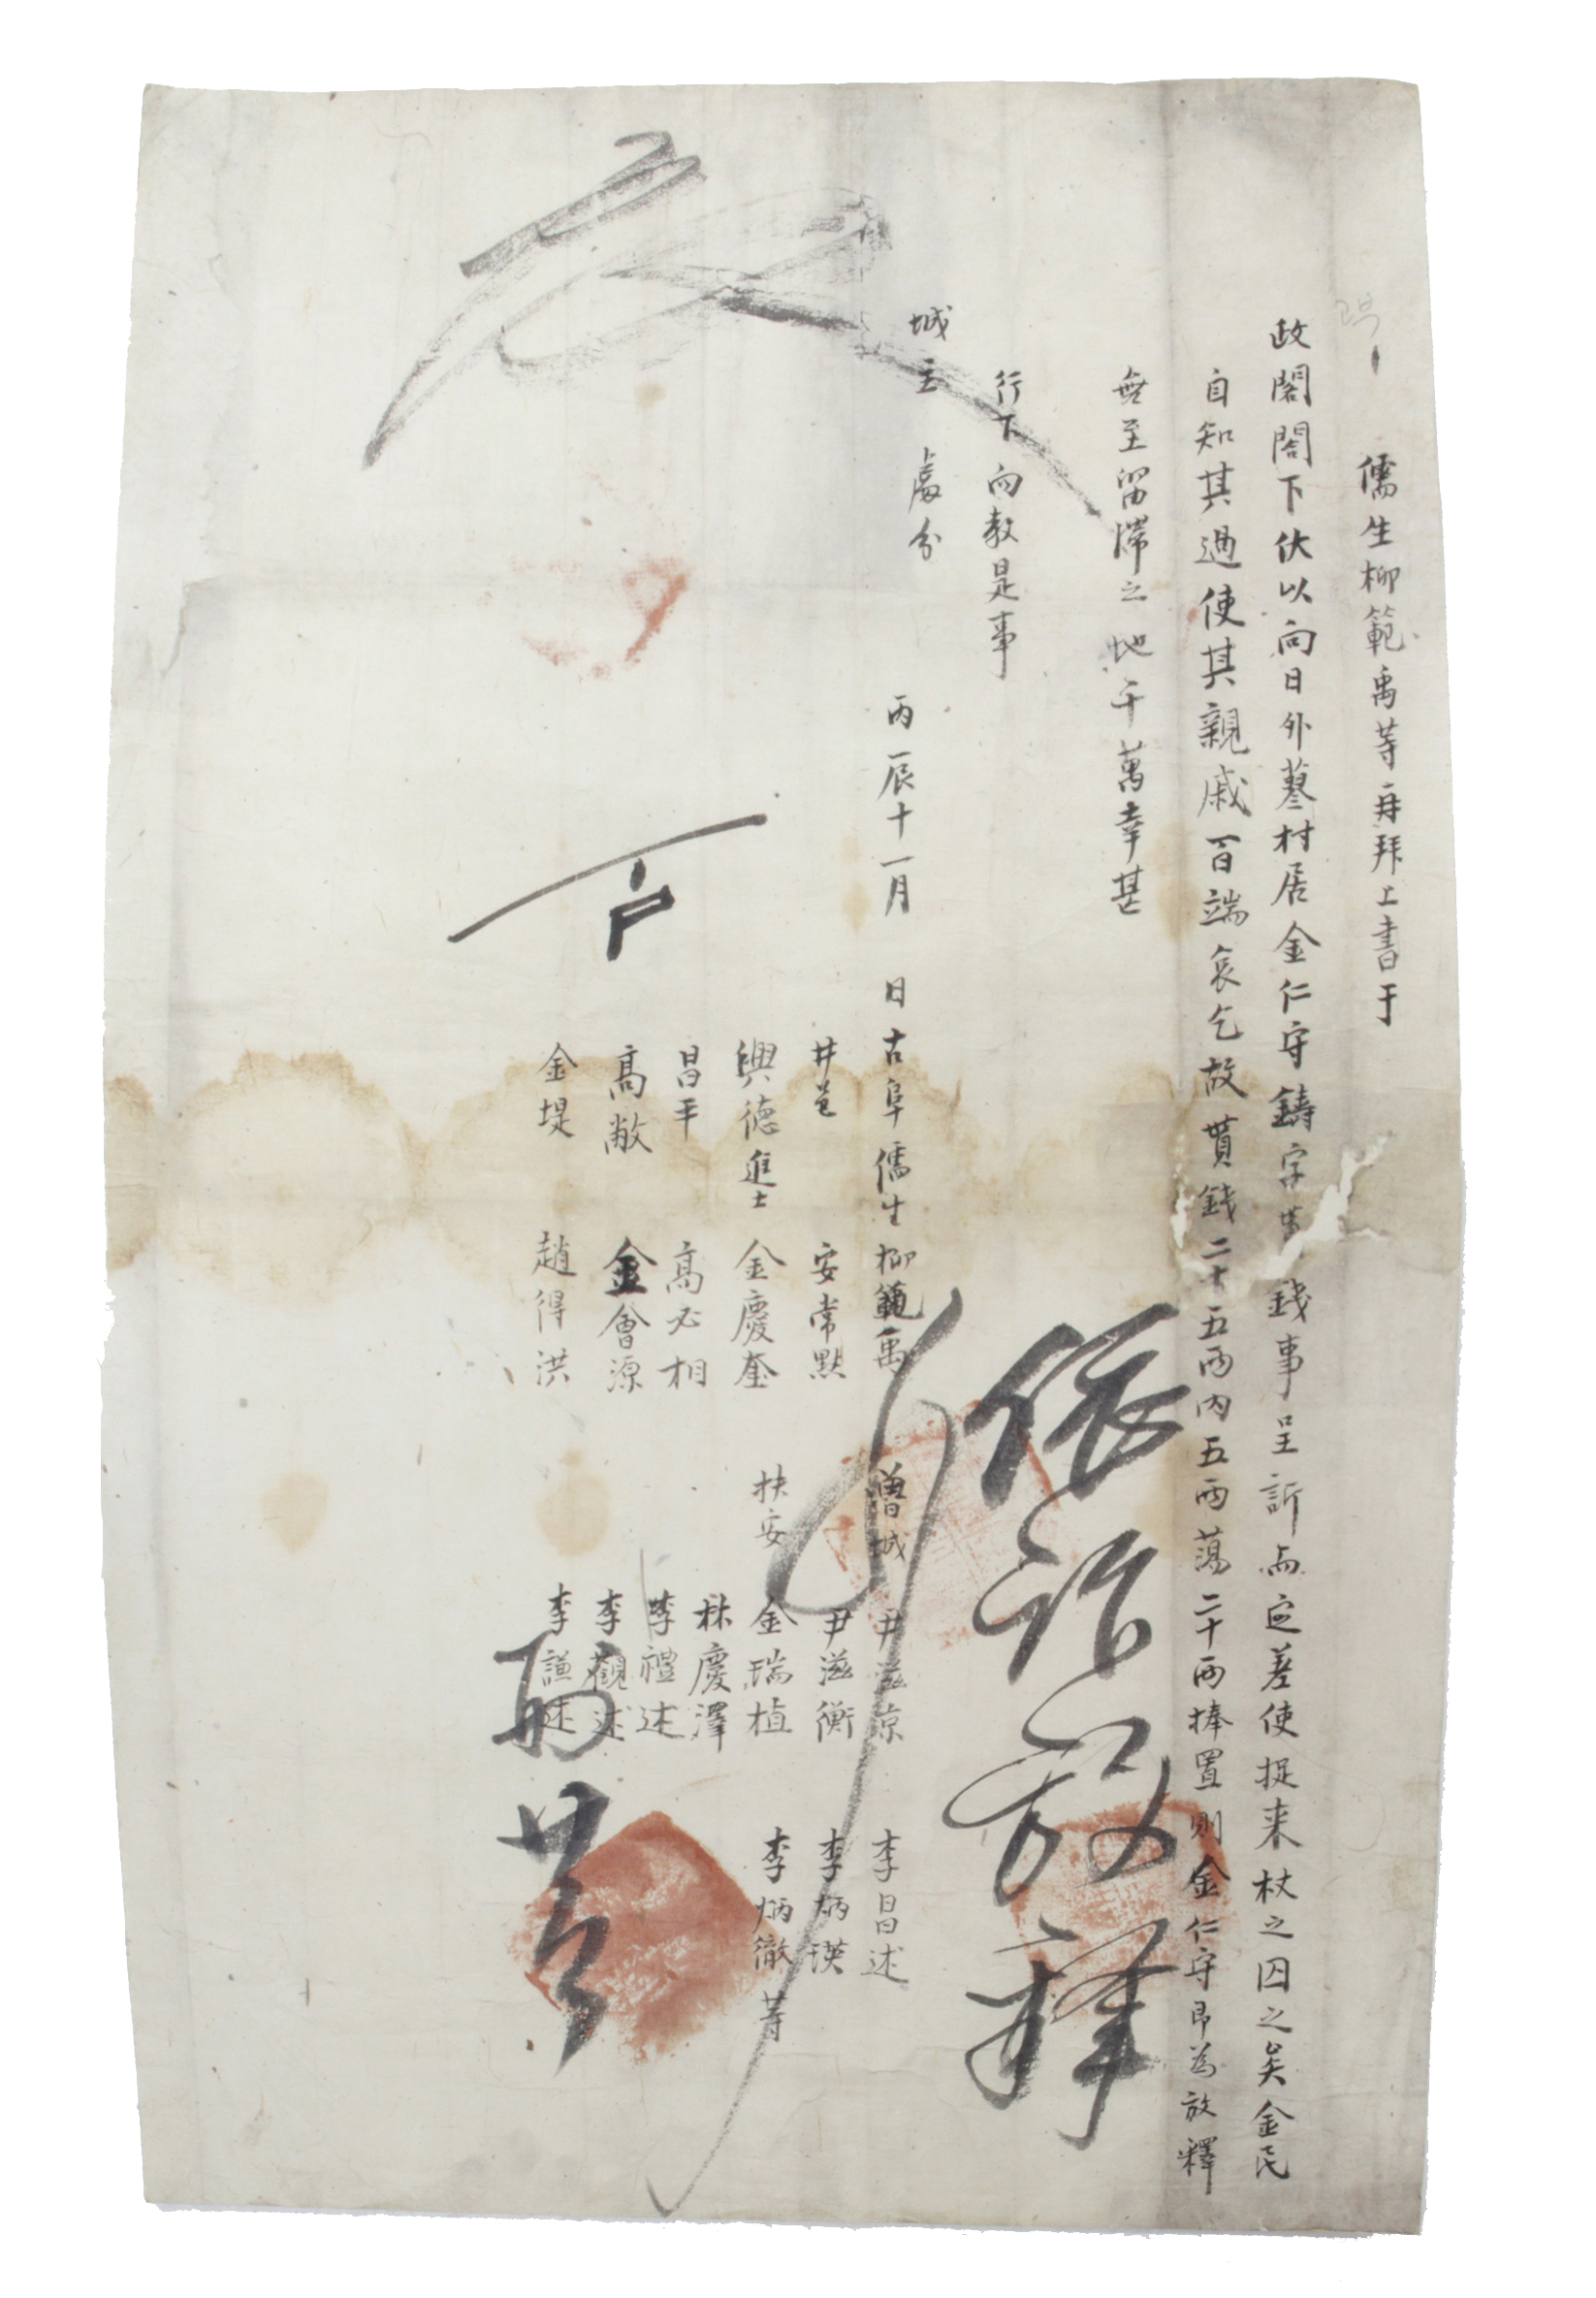 儒生柳範禹等再拜上書于
政閤閤下伏以向日外蓼村居金仁守鑄字 錢事呈訴而定差使捉来杖之囚之矣金民
自知其過使其親戚百端哀乞故貰錢二十五両內五両蕩二十両捧置則金仁守即為放釋
無至留滯之地千萬幸甚
行下向教是事
城主 處分
丙辰十一月 日古阜儒生柳範禹
井邑 安常默
興德進士 金慶奎
昌平 高必相
高敞 金會源
金堤 趙得洪
曾城 尹滋
尹滋衡
扶安 金瑞植
林慶澤
李禮述
李觀述
李謙述
李昌述
李炳瑛
李炳徹 等
依訴放釋
戶